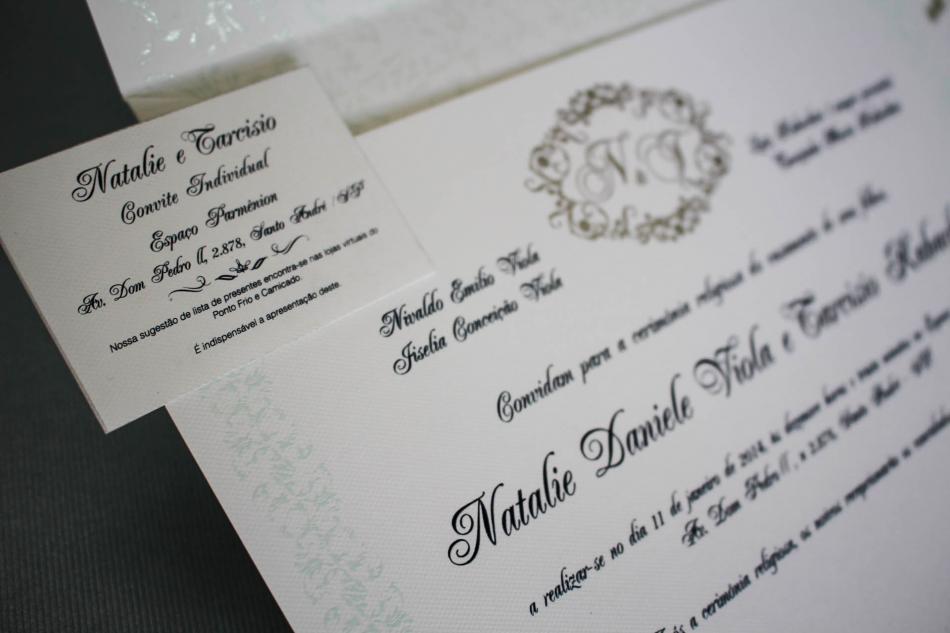 Natalie e Tarcisio
Convite Individual
Espaço Parmênion
Av. Dom Pedro II, 2.878, Santo André / SP
Nossa sugestão de lista de presentes encontra-se nas lojas virtuais do
Ponto Frio e Camicado.
É indispensável a apresentação deste.
N & T
Nivaldo Emilio Viola
Jiselia Conceição Viola
Convidam para a cerimônia religiosa do casamento de seus filhos,
Natalie Daniele Viola e Tarcisio
a realizar-se no dia 11 de janeiro de 2014, às dezenove horas e trinta minutos no Espaço
Av. Dom Pedro II, n 2.878, Santo André - SP
a cerimônia religiosa, os noivos recepcionarão os convidados